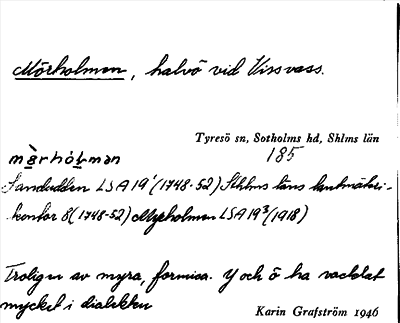 Mörholmen, halvö vid Vissvass.
Tyresö sn, Sotholms hd, Shlms län
185
mèrhò̩lmən
Sanduddn LSA 19¹ (1748-52) Sthlms läns lantmäteri-
kontor 8 (1748-52) Myrholmen LSA 19³ (1918)
Troligen av myra, formica. Y och ö ha växlat
mycket i dialekten
Karin Grafström 1946